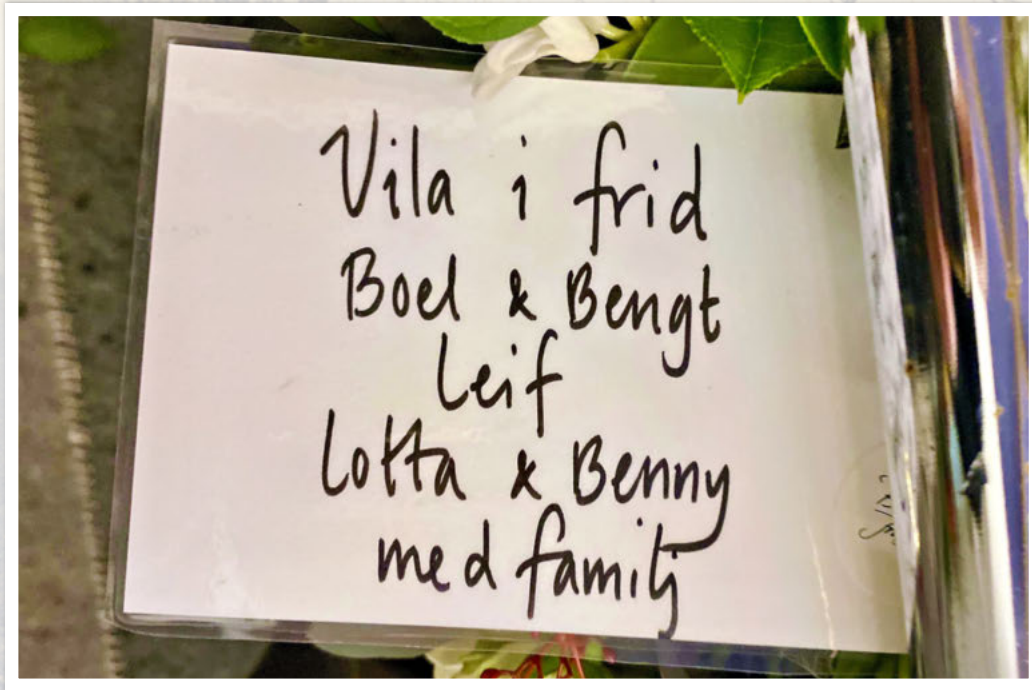 Vila i frid
Boel & Bengt
Leif
Lotta & Benny
med familj